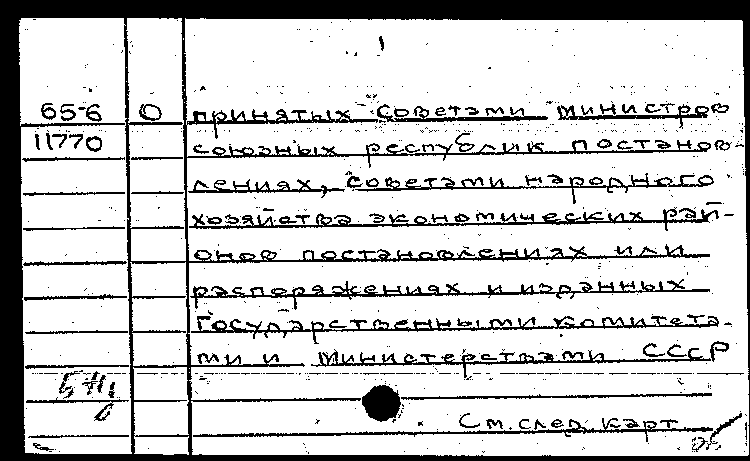 65-6 О принятых советами министров
11770 союзных республик постанов-
лениях, советами народного
хозяйства экономических рай-
онов постановлениях или
распоряжениях и изданных
Государственными комитета-
ми и министерствами СССР
См. след. карт